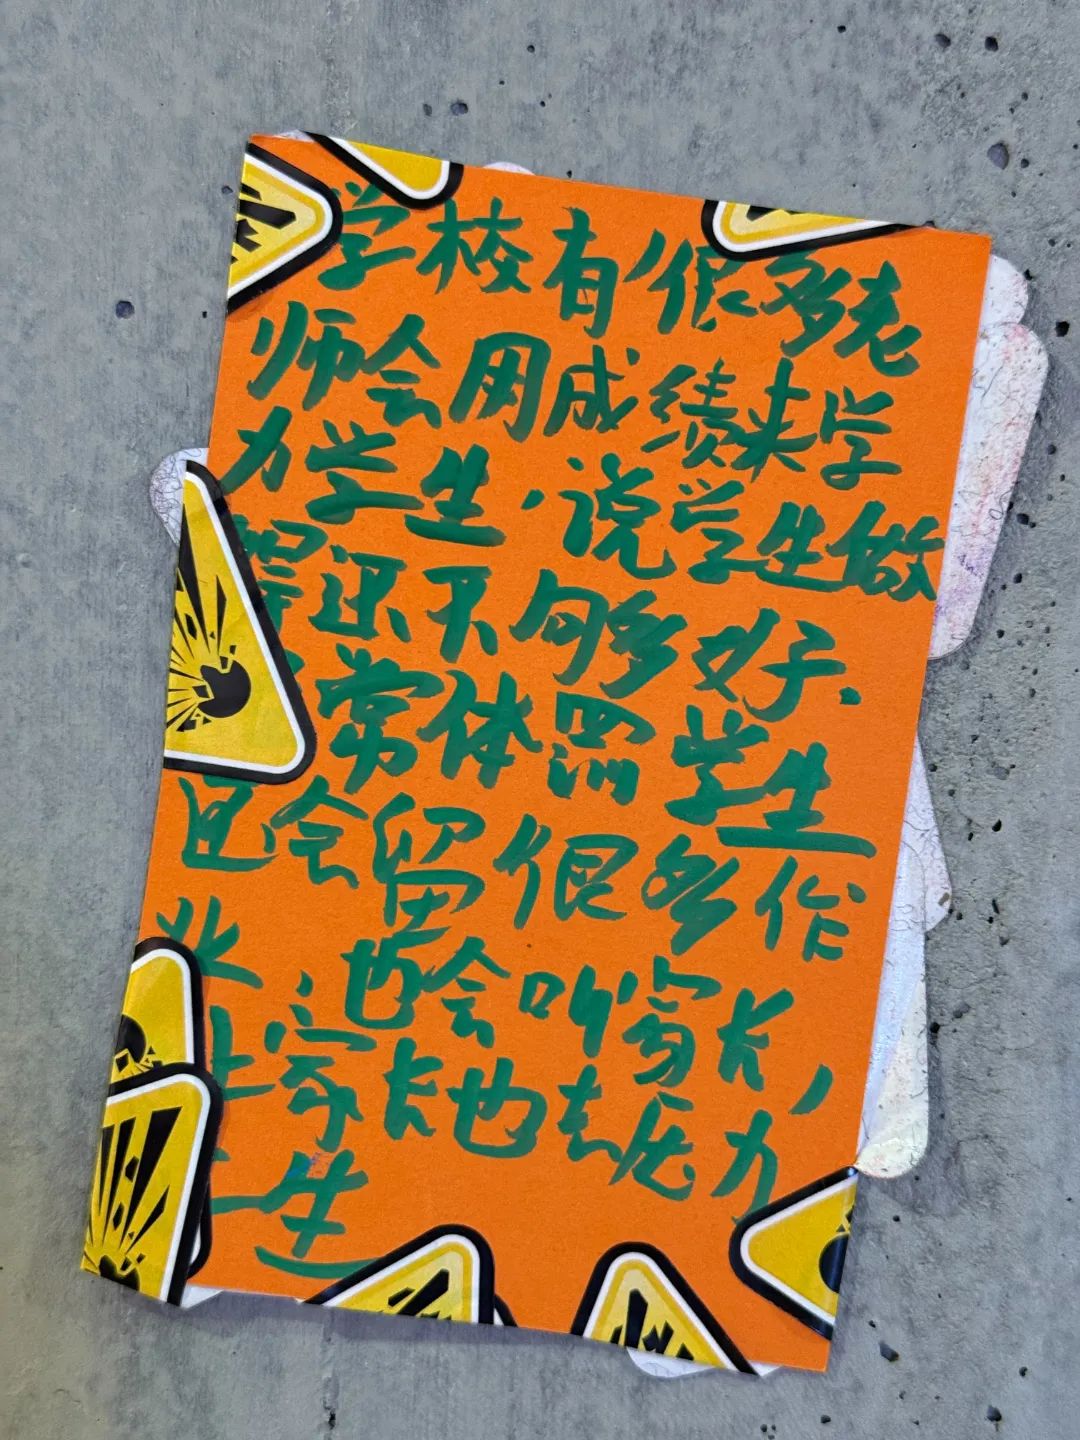 学校有很多老
师会用成绩来学
力学生，说学生做
得还不够好.
常体罚学生
还会留很多作
业、也会叫家长，
家长也去压力
生